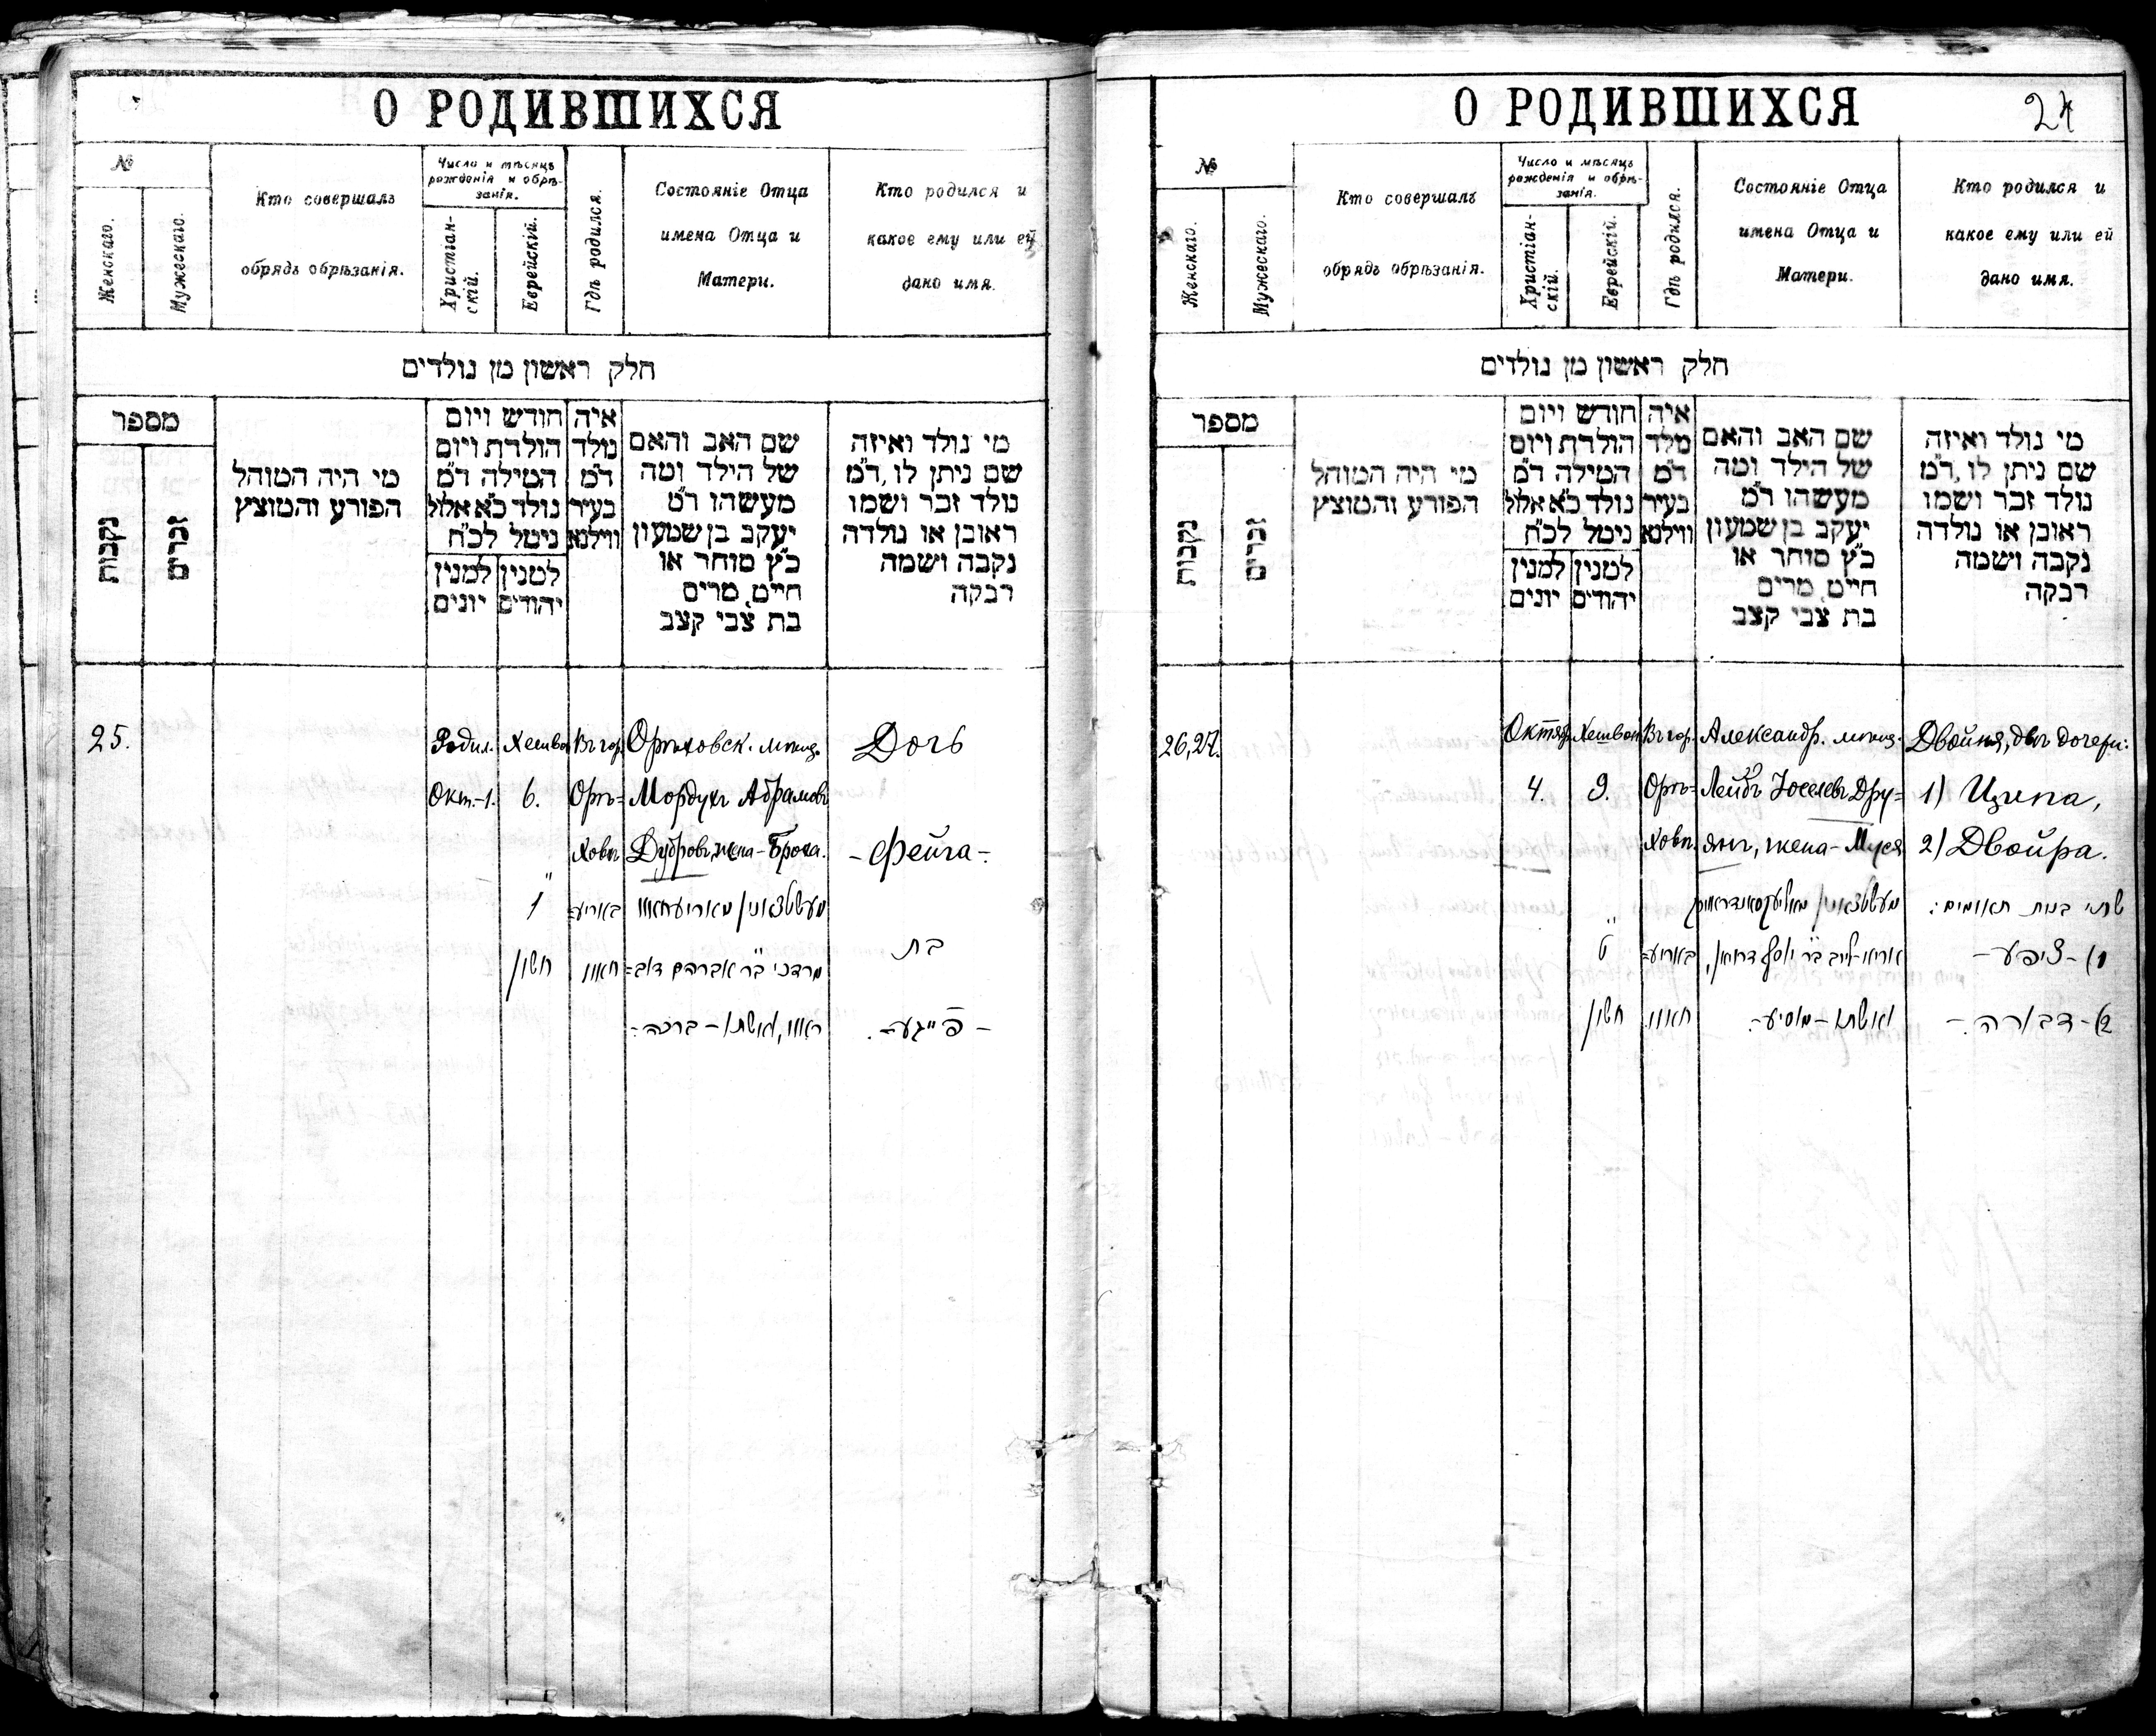 О РОДИВШИХСЯ
№
Женскаго.
Мужескаго.
Кто совершалъ
обрядъ обрѣзанія.
Число и мѣсяцъ
рожденія и обрѣ-
занія.
Христіан-
скій.
Еврейскій.
Гдѣ родился.
Состояніе Отца
имена Отца и
Матери.
Кто родился и
какое ему или ей
дано имя.
חלק ראשון מן נולדים
מספר
נקבות
זכרים
מי היה המוהל
הפורע והמוצץ
חודש ויום
הולדת ויום
המילה ד״מ
נולד כ״א אלול
נימל לכ״ח
למנין
יונים
למנין
יהודים
איה
נולד
ד״מ
בעיר
ווילנא
שם האב והאם
של הילד ומה
מעשהו ד״מ
יעקב בן שמעון
כ״ץ סוחר או
חייט, מרים
בת צבי קצב
מי נולד ואיזה
שם ניתן לו, ד״מ
נולד זכר ושמו
ראובן או נולדה
נקבה ושמה
רבקה
25.
Родил.
Окт.-1.
Хешван
6.
ו
חשון
Въ гор.
Орѣ=
ховѣ
באריע=
חאוו
Орѣховск. мѣщ.
Мордухъ Абрамовъ
Дубровъ, жена - Броха.
מעשטשאנין מאריעחאוו
מרדכי ב״ר אברהם דוב=
ראוו, ואשתו - ברכה -
Дочь
- Фейга -
בת
- פייגע -
О РОДИВШИХСЯ
24
№
Женскаго.
Мужескаго.
Кто совершалъ
обрядъ обрѣзанія.
Число и мѣсяцъ
рожденія и обрѣ-
занія.
Христіан-
скій.
Еврейскій.
Гдѣ родился.
Состояніе Отца
имена Отца и
Матери.
Кто родился и
какое ему или ей
дано имя.
חלק ראשון מן נולדים
מספר
נקבות
זכרים
מי היה המוהל
הפורע והמוצץ
חודש ויום
הולדת ויום
המילה ד״מ
נולד כ״א אלול
נימל לכ״ח
למנין
יונים
למנין
יהודים
איה
נולד
ד״מ
בעיר
ווילנא
שם האב והאם
של הילד ומה
מעשהו ד״מ
יעקב בן שמעון
כ״ץ סוחר או
חייט, מרים
בת צבי קצב
מי נולד ואיזה
שם ניתן לו, ד״מ
נולד זכר ושמו
ראובן או נולדה
נקבה ושמה
רבקה
26, 27.
Октяб.
4.
Хешван
9.
ט
חשון
Въ гор.
Орѣ=
ховѣ.
באריע=
חאוו
Александр. мѣщ.
Лейбъ Іоселевъ Дру=
янъ, жена - Муся
מעשטשאנין
אריה-ליב ב״ר יוסף דרויאן,
ואשתו - מוסיע -
Двойня, двѣ дочери:
1) Ципа,
2) Двойра.
שתי בנות תאומים:
1) - ציפע -
2) - דבורה -